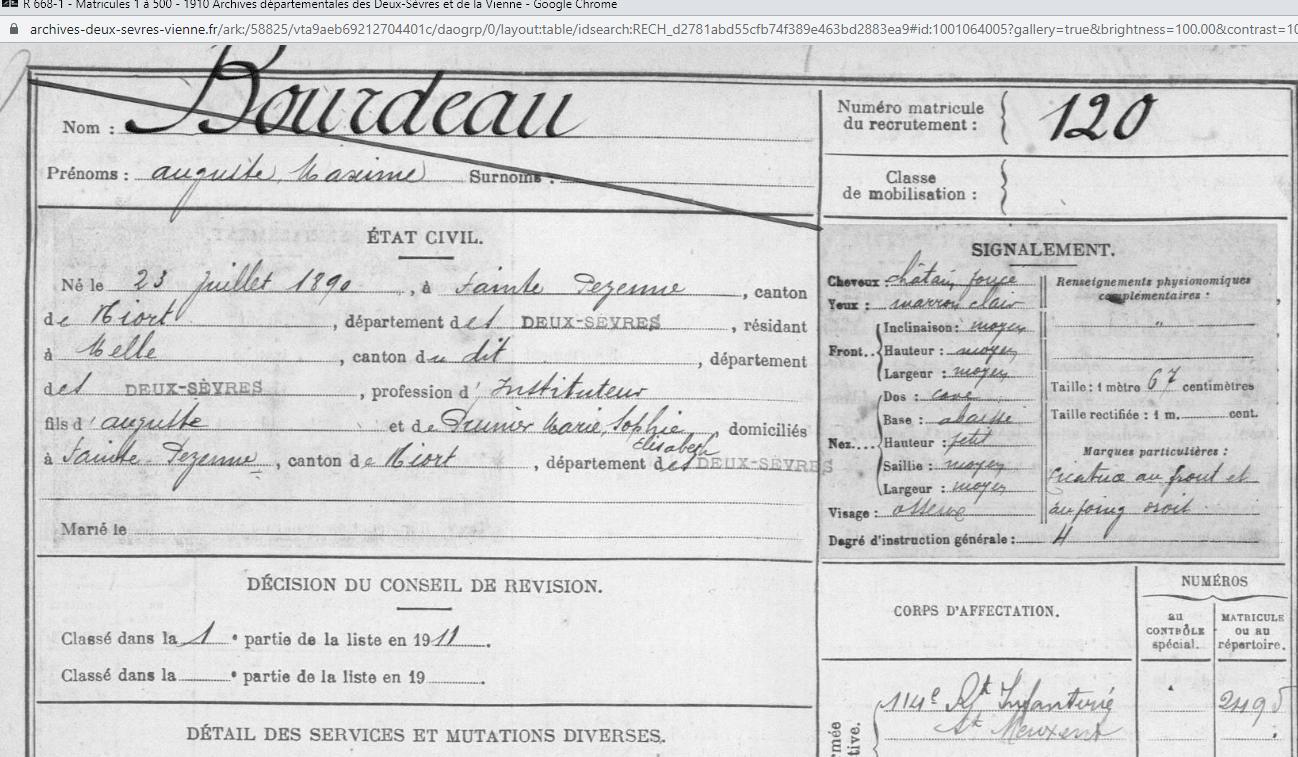 R 668-1 - Matricules 1 à 500 - 1910 Archives départementales des Deux-Sèvres et de la Vienne - Google Chrome
archives-deux-sevres-vienne.fr/ark:/58825/vta9aeb69212704401c/daogrp/0/layout:table/idsearch:RECH_d2781abd55cfb74f389e463bd2883ea9#id:1001064005?gallery=true&brightness=100.00&contrast=10
Nom : Bourdeau
Prénoms : auguste, Maxime Surnoms :
Numéro matricule
du recrutement : 120
Classe
de mobilisation :
ÉTAT CIVIL.
Né le 23 juillet 1890, à Sainte Pezenne, canton
de Niort, département des DEUX-SÈVRES, résidant
à Melle, canton du dit, département
des DEUX-SÈVRES, profession d'Instituteur
fils d'auguste et de Prunier Marie, Sophie domiciliés
Elisabeth
à Sainte-Pezenne, canton de Niort, département des DEUX-SÈVRES
Marié le
SIGNALEMENT.
Cheveux châtain foncé
Yeux : marron clair
Front.. Inclinaison : moyen
Hauteur : moyen
Largeur : moyen
Nez.... Dos : cave
Base : abaissé
Hauteur : petit
Saillie : moyen
Largeur : moyen
Visage : osseux
Degré d'instruction générale : 4
Renseignements physionomiques
complémentaires :
"
Taille : 1 mètre 67 centimètres
Taille rectifiée : 1 m. cent.
Marques particulières :
Cicatrice au front et
au poing droit
DÉCISION DU CONSEIL DE REVISION.
Classé dans la 1e partie de la liste en 1911.
Classé dans la e partie de la liste en 19 .
DÉTAIL DES SERVICES ET MUTATIONS DIVERSES.
CORPS D'AFFECTATION.
NUMÉROS
au
CONTRÔLE
spécial.
MATRICULE
ou au
répertoire.
114e Rt Infanterie
St Maixent
2495